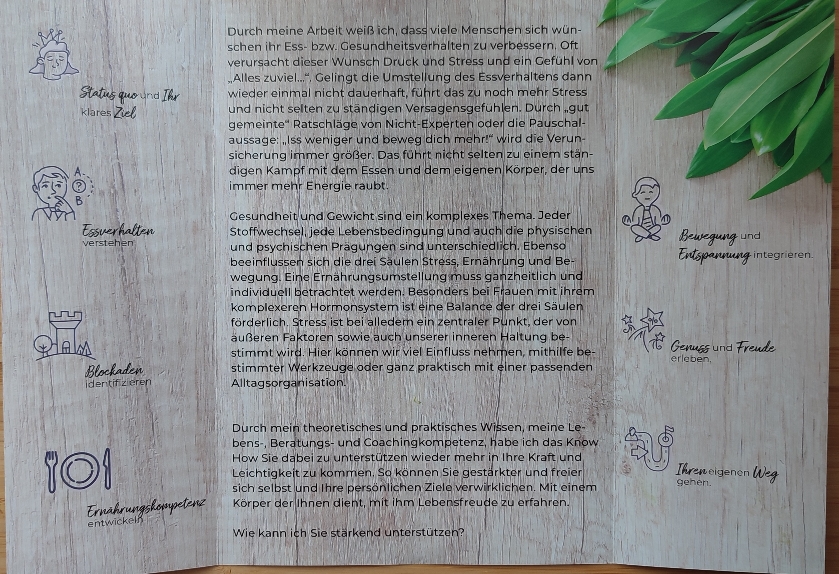 Status quo und Ihr
klares Ziel
A
?
B
Essverhalten
verstehen
Blockaden
identifizieren
Ernährungskompetenz
entwickeln
Durch meine Arbeit weiß ich, dass viele Menschen sich wün-
schen ihr Ess- bzw. Gesundheitsverhalten zu verbessern. Oft
verursacht dieser Wunsch Druck und Stress und ein Gefühl von
„Alles zuviel...“. Gelingt die Umstellung des Essverhaltens dann
wieder einmal nicht dauerhaft, führt das zu noch mehr Stress
und nicht selten zu ständigen Versagensgefühlen. Durch „gut
gemeinte“ Ratschläge von Nicht-Experten oder die Pauschal-
aussage: „Iss weniger und beweg dich mehr!“ wird die Verun-
sicherung immer größer. Das führt nicht selten zu einem stän-
digen Kampf mit dem Essen und dem eigenen Körper, der uns
immer mehr Energie raubt.
Gesundheit und Gewicht sind ein komplexes Thema. Jeder
Stoffwechsel, jede Lebensbedingung und auch die physischen
und psychischen Prägungen sind unterschiedlich. Ebenso
beeinflussen sich die drei Säulen Stress, Ernährung und Be-
wegung. Eine Ernährungsumstellung muss ganzheitlich und
individuell betrachtet werden. Besonders bei Frauen mit ihrem
komplexeren Hormonsystem ist eine Balance der drei Säulen
förderlich. Stress ist bei alledem ein zentraler Punkt, der von
äußeren Faktoren sowie auch unserer inneren Haltung be-
stimmt wird. Hier können wir viel Einfluss nehmen, mithilfe be-
stimmter Werkzeuge oder ganz praktisch mit einer passenden
Alltagsorganisation.
Durch mein theoretisches und praktisches Wissen, meine Le-
bens-, Beratungs- und Coachingkompetenz, habe ich das Know
How Sie dabei zu unterstützen wieder mehr in Ihre Kraft und
Leichtigkeit zu kommen. So können Sie gestärkter und freier
sich selbst und Ihre persönlichen Ziele verwirklichen. Mit einem
Körper der Ihnen dient, mit ihm Lebensfreude zu erfahren.
Wie kann ich Sie stärkend unterstützen?
Bewegung und
Entspannung integrieren.
Genuss und Freude
erleben.
Ihren eigenen Weg
gehen.